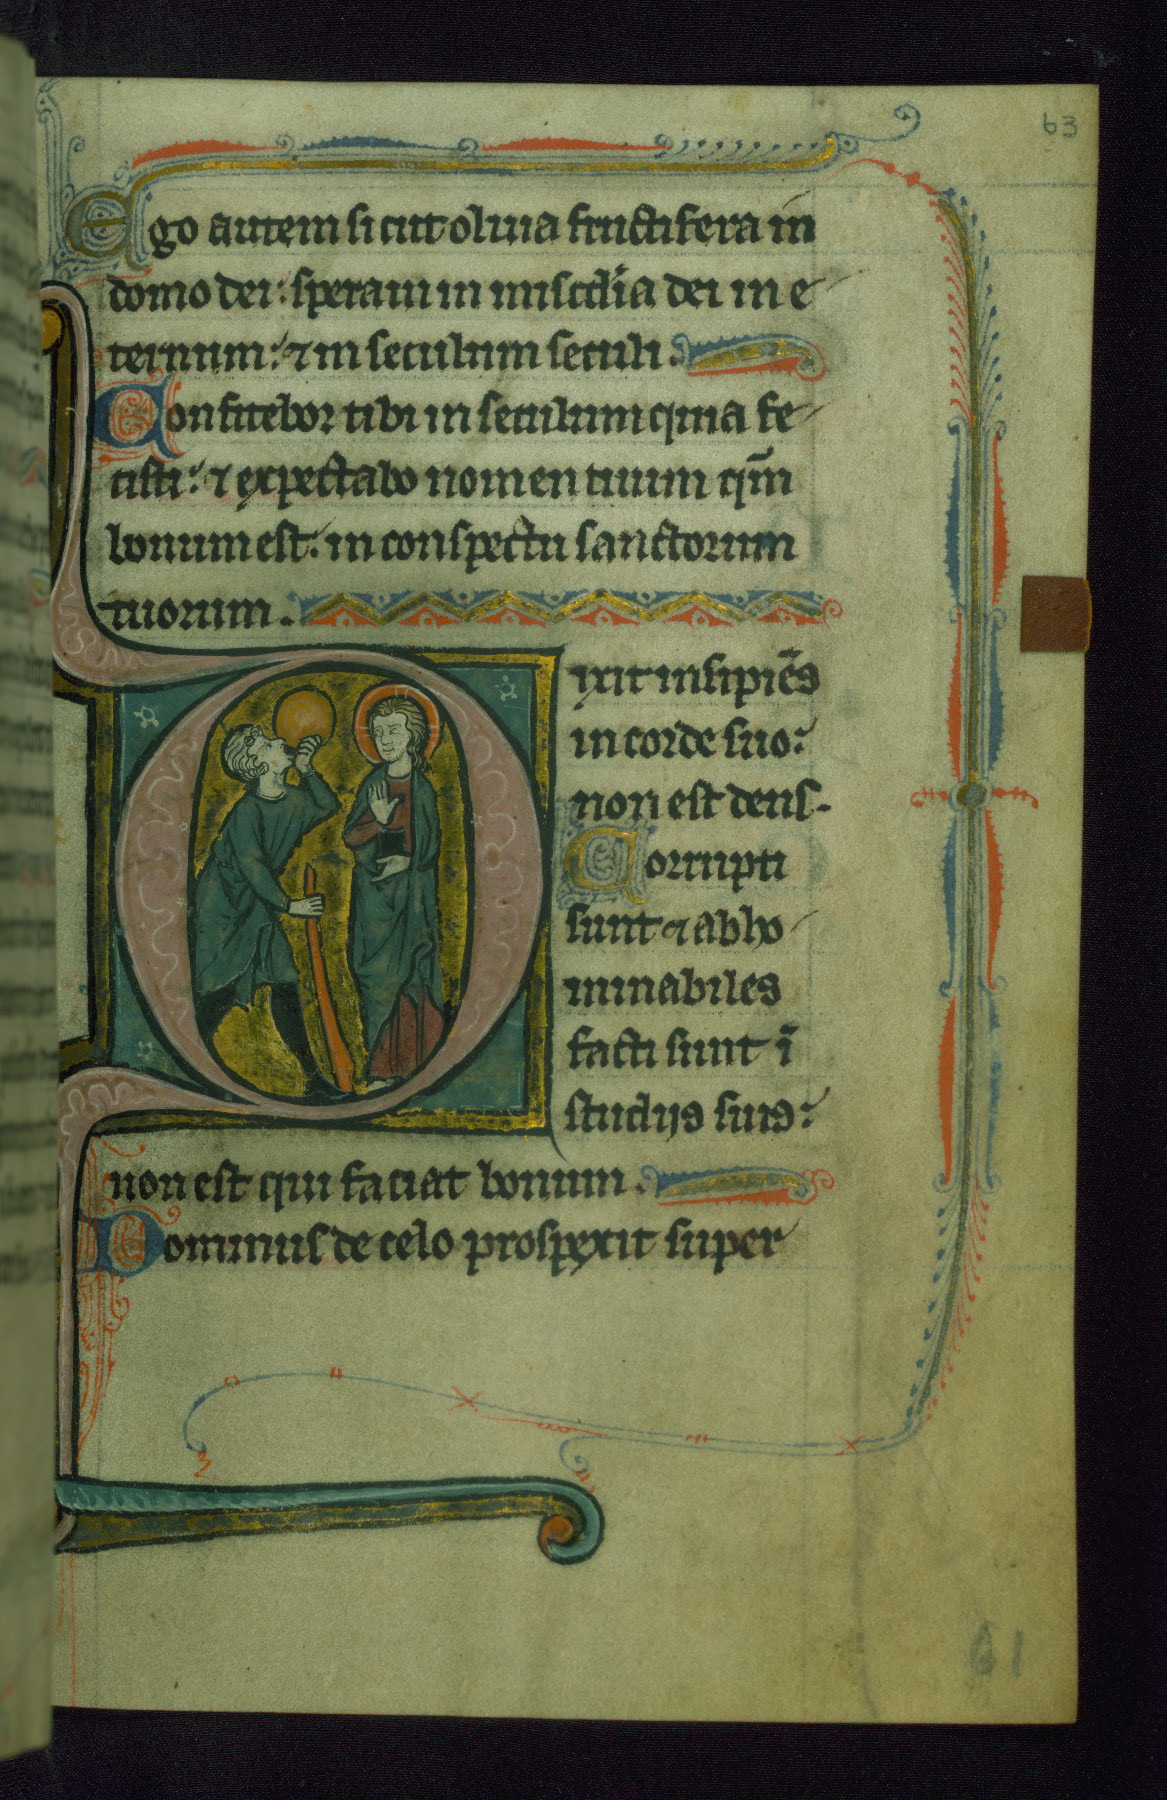 63
Ego autem sicut oliua fructifera in
domo dei: speraui in miscdi̅a dei in e
ternum: ⁊ in seculum seculi.
Confitebor tibi in seculum quia fe
cisti: ⁊ expectabo nomen tuum qm̅
bonum est: in conspectu sanctorum
tuorum.
Dixit insipie̅s
in corde suo:
non est deus.
Corrupti
sunt ⁊ abho
minabiles
facti sunt i̅
studijs suis:
non est qui faciat bonum.
Dominus de celo prospexit super
61